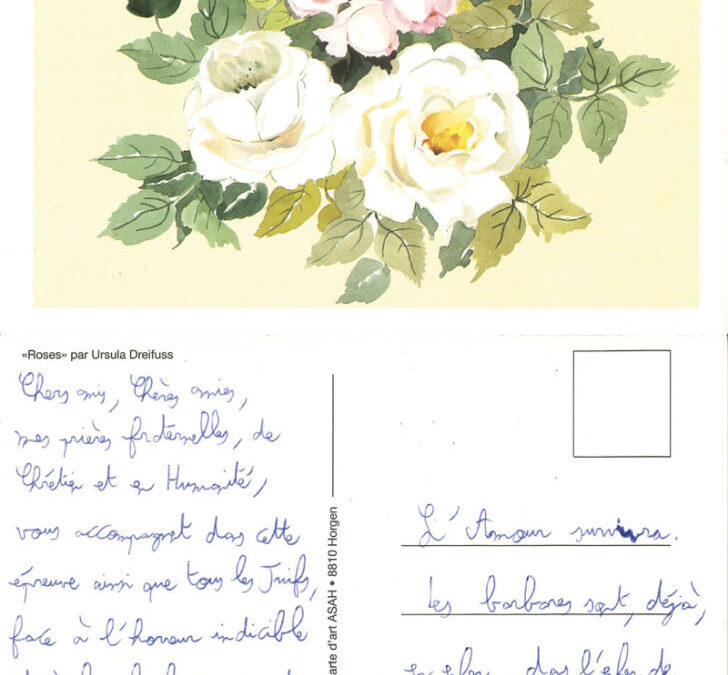 «Roses» par Ursula Dreifuss
Chers amis, Chères amies,
mes prières fraternelles, de
Chrétien et en Humanité,
vous accompagnent dans cette
épreuve ainsi que tous les Juifs,
face à l'horreur indicible
arte d'art ASAH • 8810 Horgen
L'Amour survivra.
Les barbares sont, déjà,
dans l'enfer de